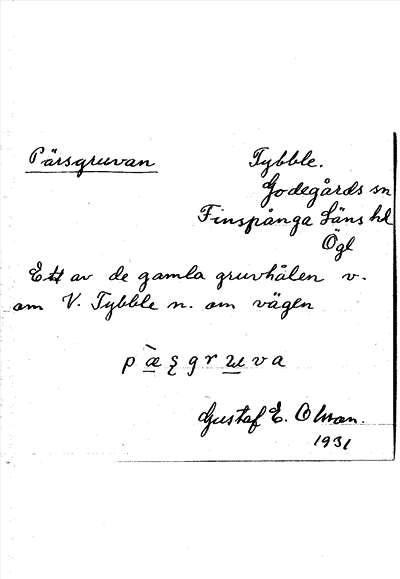 Pärsgruvan
Tybble.
Godegårds sn
Finspånga Läns hd
Ögl
Ett av de gamla gruvhålen v.
om V. Tybble n. om vägen
Gustaf E. Olsson.
1931